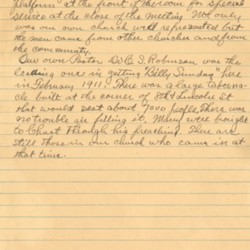 Platform" at the front of the room for special
service at the close of the meeting. Not only
was our own church well represented but
the men came from other churches and from
the community.
Our own Pastor Dr E J Robinson was the
one in getting "Billy Sunday" here
in February 1911. There was a large taberna-
cle built at the corner of 8th & Lincoln St
that would seat about 7000 people. There was
no trouble in filling it. Many were bought
to Christ through his preaching. There are
still those in our church who came in at
that time.